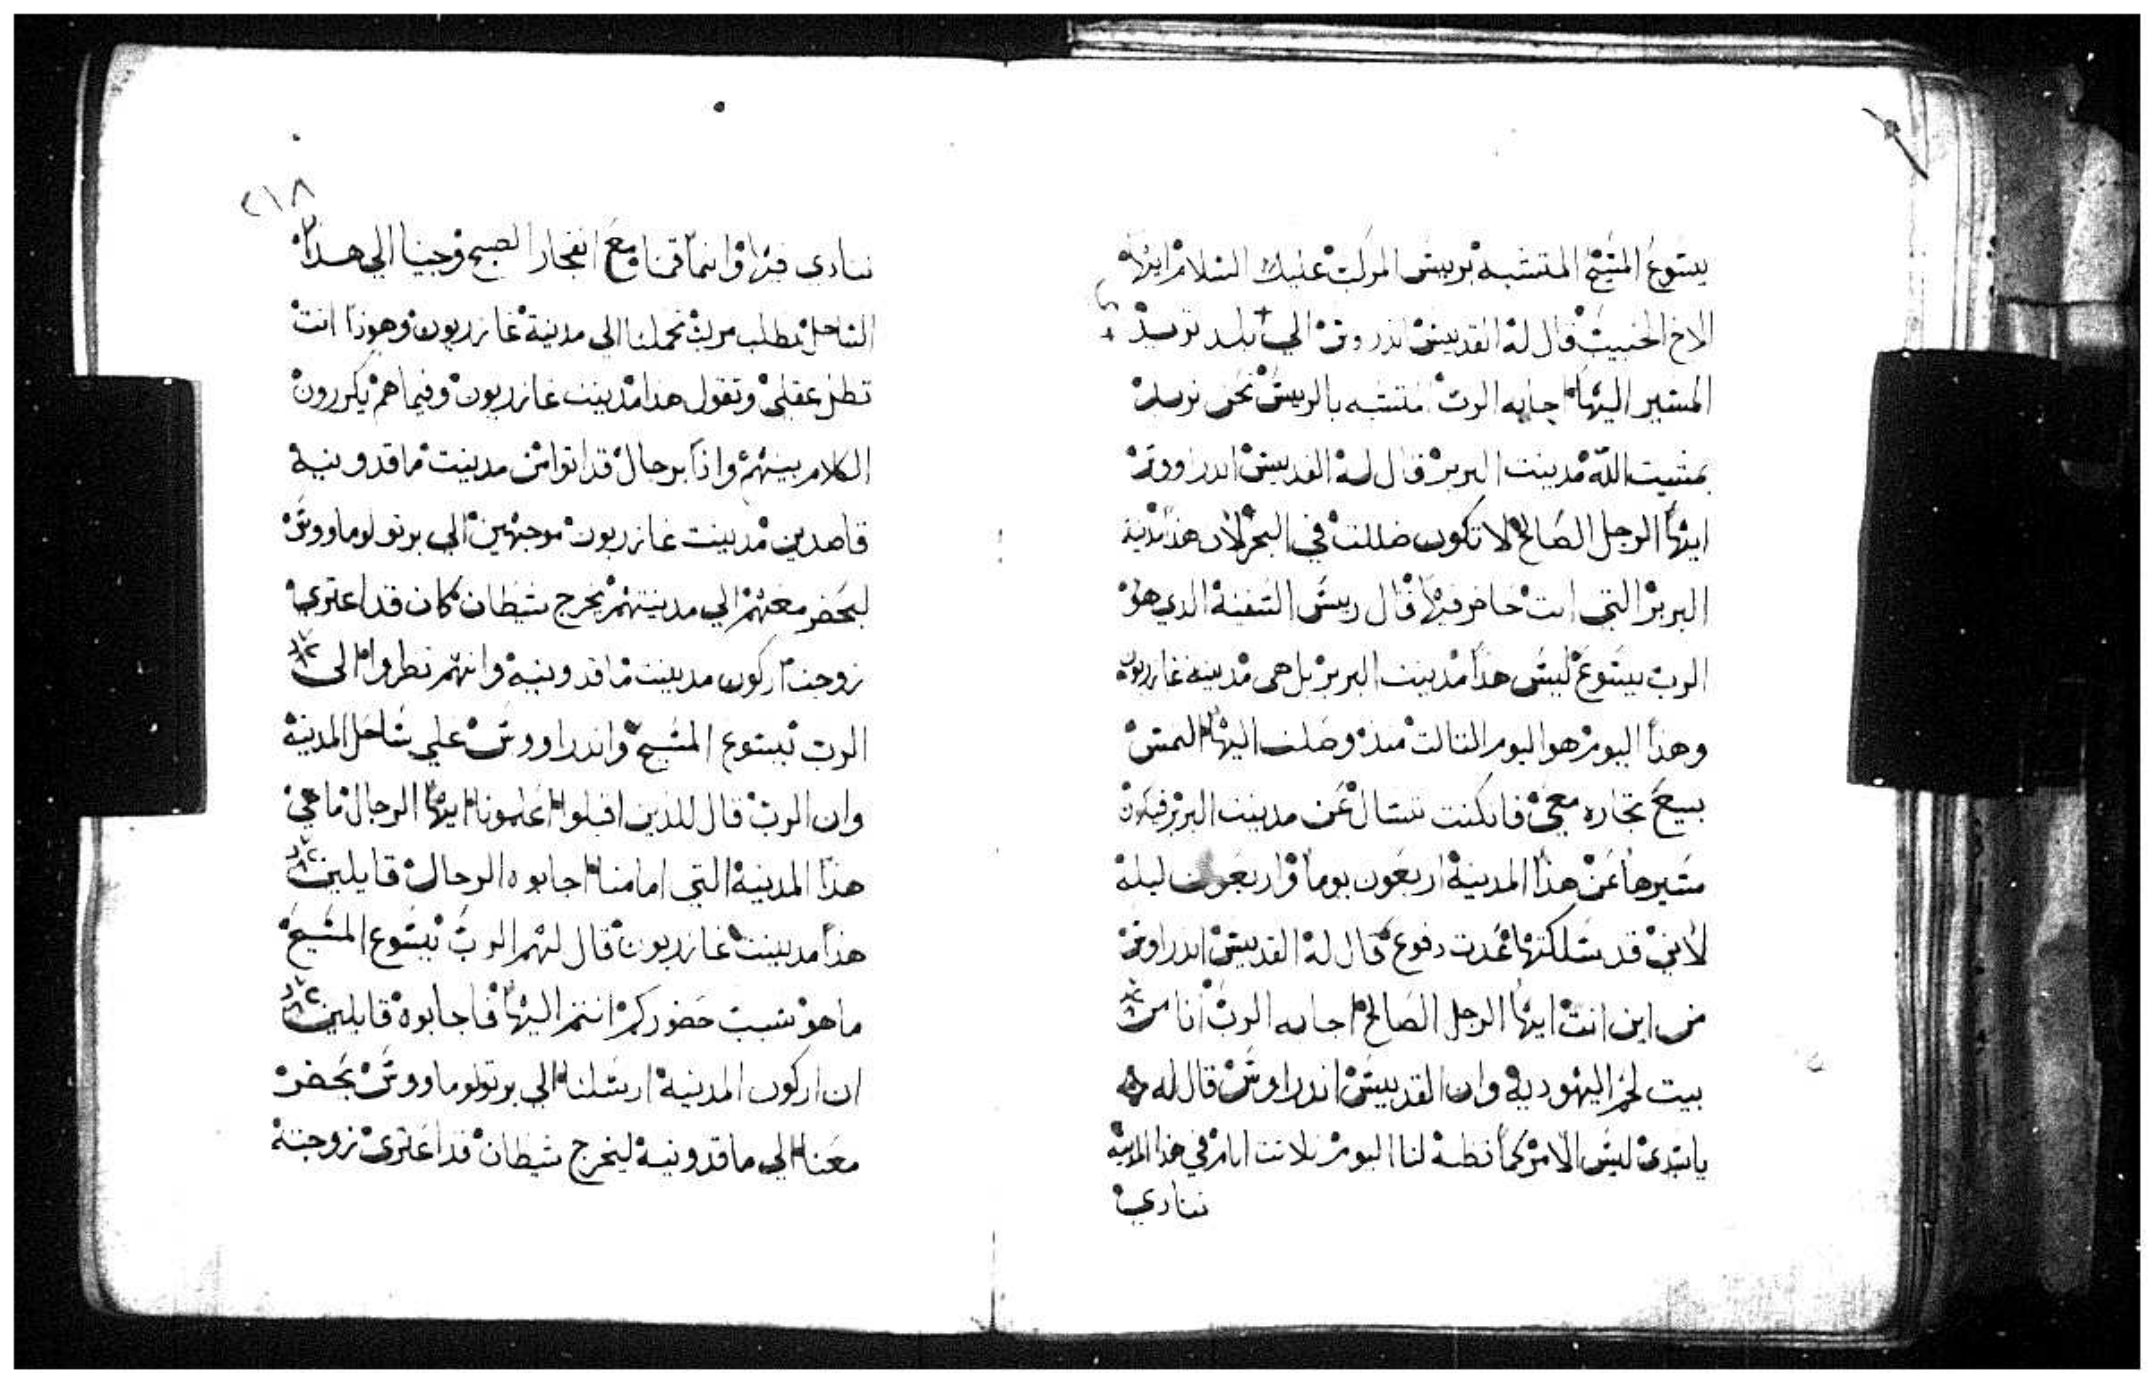 يسوع المسيح المتشبه بريس المركب عليك السلام ايها
الاخ الحبيب قال له القديس اندروس الي بلد تريد
المسير اليها اجابه الرب متشبه بالريس نحن نريد
بمشيت الله مدينت البربر قال له القديس اندراووس
ايها الرجل الصالح لا تكون ضللت في البحر لان هذا مدينة
البربر التي انت حاضر فيها قال ريس السفينة الدي هو
الرب يسوع ليس هذا مدينت البربر بل هى مدينة غازريون
وهذا اليوم هو اليوم التالت منذ وصلت اليها التمس
بيع تجاره معي فان كنت تسال عن مدينت البربر فيكون
مسيرها عن هذا المدينة اربعون يوما واربعون ليلة
لانني قد سلكتها عدت دفوع قال له القديس اندراوس
من اين انت ايها الرجل الصالح اجابه الرب انا من
بيت لحم اليهودية وان القديس اندراوس قال له
يا سيدي ليس الامر كما تظن لنا اليوم تلاتت ايام في هذا المدينة
ننادي
٢١٨
ننادي فيها وانما قمنا مع انفجار الصبح وجينا الي هذا
الساحل نطلب مركب تحملنا الي مدينة غازريون وهوذا انت
تظل عقلي وتقول هذا مدينت غازريون وفيما هم يكررون
الكلام بينهم واذا برجال قد اتوا من مدينت ماقدونية
قاصدين مدينت غازريون موجهين الي برتولوماووس
ليحضر معهم الي مدينتهم يخرج شيطان كان قد اعترى
زوجت اركون مدينت ماقدونية وانهم نظروا الى
الرب يسوع المسيح واندراووس علي ساحل المدينة
وان الرب قال للذين اقبلوا اعلمونا ايها الرجال ما هي
هذا المدينة التي امامنا اجابوه الرجال قايلين
هذا مدينت غازريون قال لهم الرب يسوع المسيح
ما هو سبب حضوركم انتم اليها فاجابوه قايلين
ان اركون المدينة ارسلنا الي برتولوماووس يحضر
معنا الي ماقدونية ليخرج شيطان قد اعترى زوجته